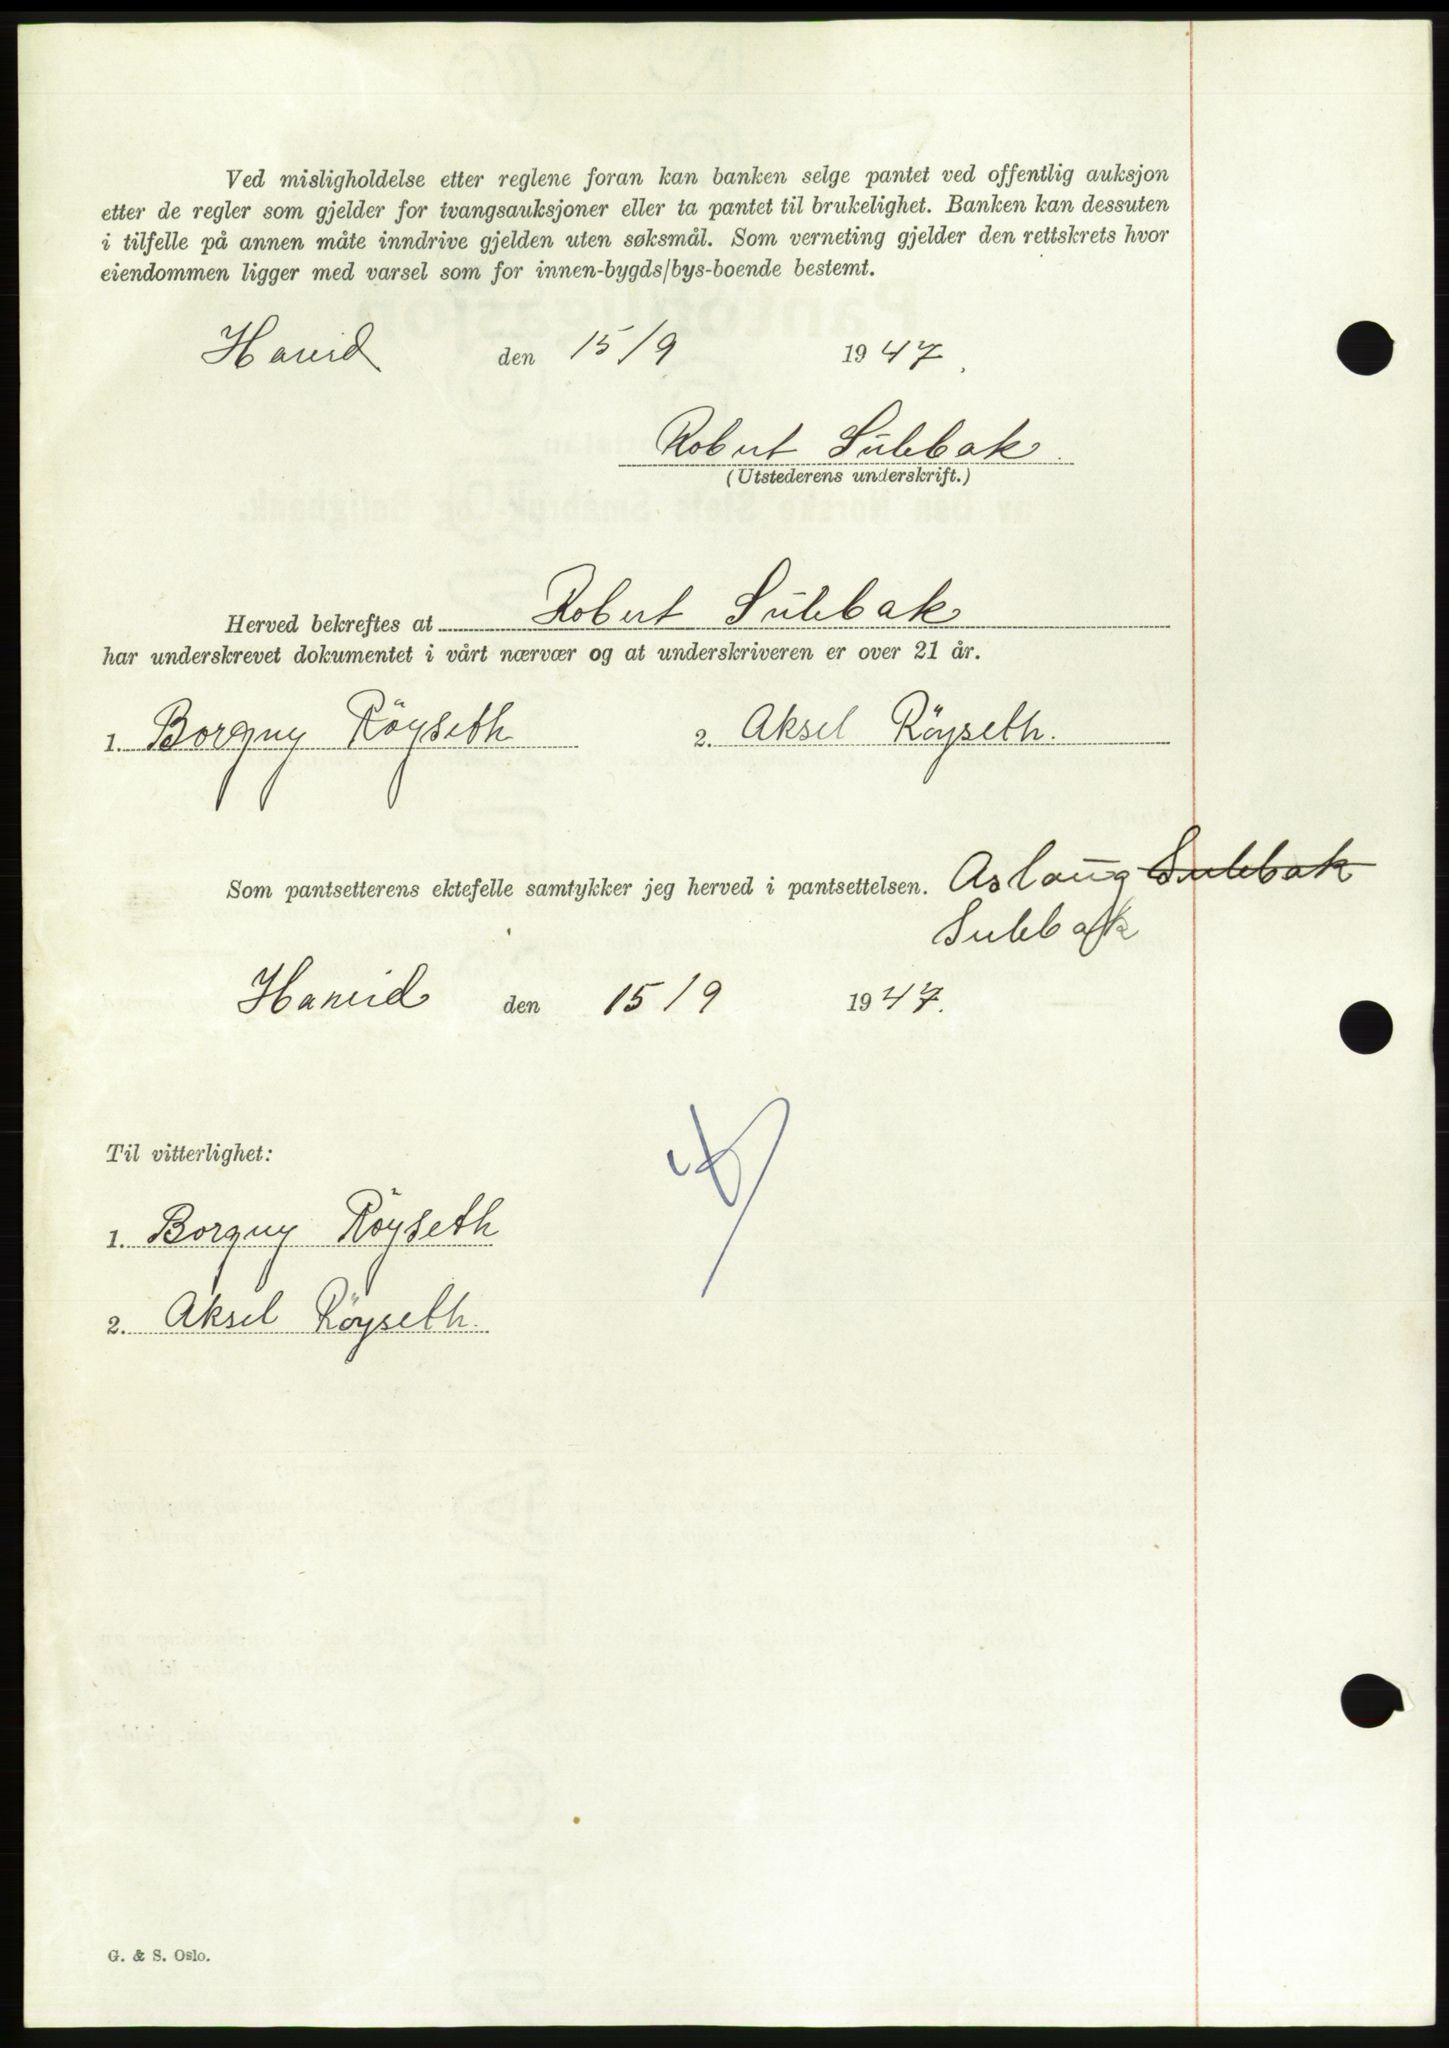 Ved misligholdelse etter reglene foran kan banken selge pantet ved offentlig auksjon
etter de regler som gjelder for tvangsauksjoner eller ta pantet til brukelighet. Banken kan dessuten
i tilfelle på annen måte inndrive gjelden uten søksmål. Som verneting gjelder den rettskrets hvor
eiendommen ligger med varsel som for innen-bygds/bys-boende bestemt.
Hareid den 15/9 1947.
Robert Sulebak.
(Utstederens underskrift.)
Herved bekreftes at Robert Sulebak
har underskrevet dokumentet i vårt nærvær og at underskriveren er over 21 år.
1. Borgny Röyseth 2. Aksel Röyseth.
Som pantsetterens ektefelle samtykker jeg herved i pantsettelsen. Aslaug Sulebak
Sulebak
Hareid den 15/9 1947.
Til vitterlighet:
1. Borgny Röyseth
2. Aksel Röyseth.
G. & S. Oslo.